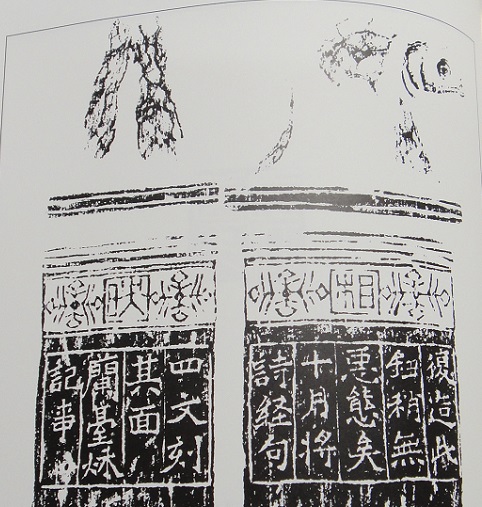 相
復造此
鈕稍無
惡態矣
十月將
詩經句
四文刻
其面
蘭臺秌
記事